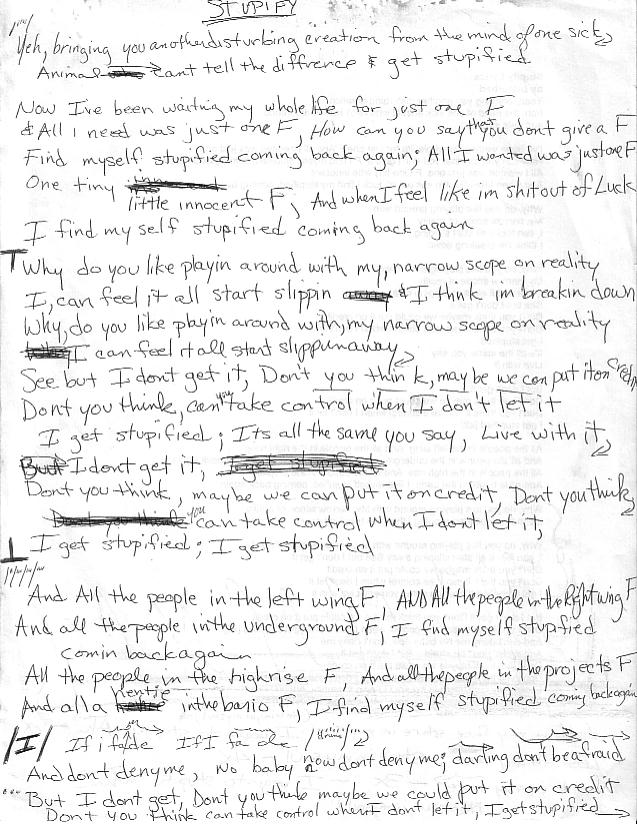 STUPIFY
Yeh, bringing you another disturbing creation from the mind of one sick
Animal cant tell the diffrence & get stupified
Now Ive been waiting my whole life for just one F
& All I need was just one F, How can you say that you dont give a F
Find myself stupified coming back again; All I wanted was just one F
One tiny
little innocent F, And when I feel like im shit out of Luck
I find my self stupified coming back again
Why do you like playin around with my, narrow scope on reality
I, can feel it all start slippin & I think im breakin down
Why, do you like playin around with, my narrow scope on reality
I can feel it all start slippun away
See but I dont get it, Don't you think, maybe we can put it on credit
Dont you think, can you take control when I don't let it
I get stupified; Its all the same you say, Live with it,
But I dont get it,
Dont you think, maybe we can put it on credit, Dont you think
you can take control when I dont let it,
I get stupified; I get stupified
And All the people in the left wing F, AND All the people in the Right wing F
And all the people in the underground F, I find myself stupified
comin back again
All the people in the highrise F, And all the people in the projects F
And all a in the barrio F, I find myself stupified coming back again
If i fade If I fade
And dont deny me, No baby now dont deny me; darling don't be afraid
But I dont get, Dont you think maybe we could put it on credit
Don't you think can take control when I dont let it, I get stupified